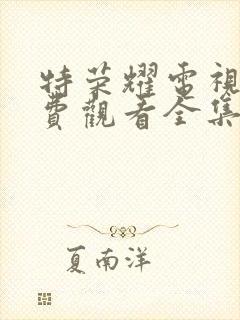 特荣耀電視
費觀看全集
夏南洋